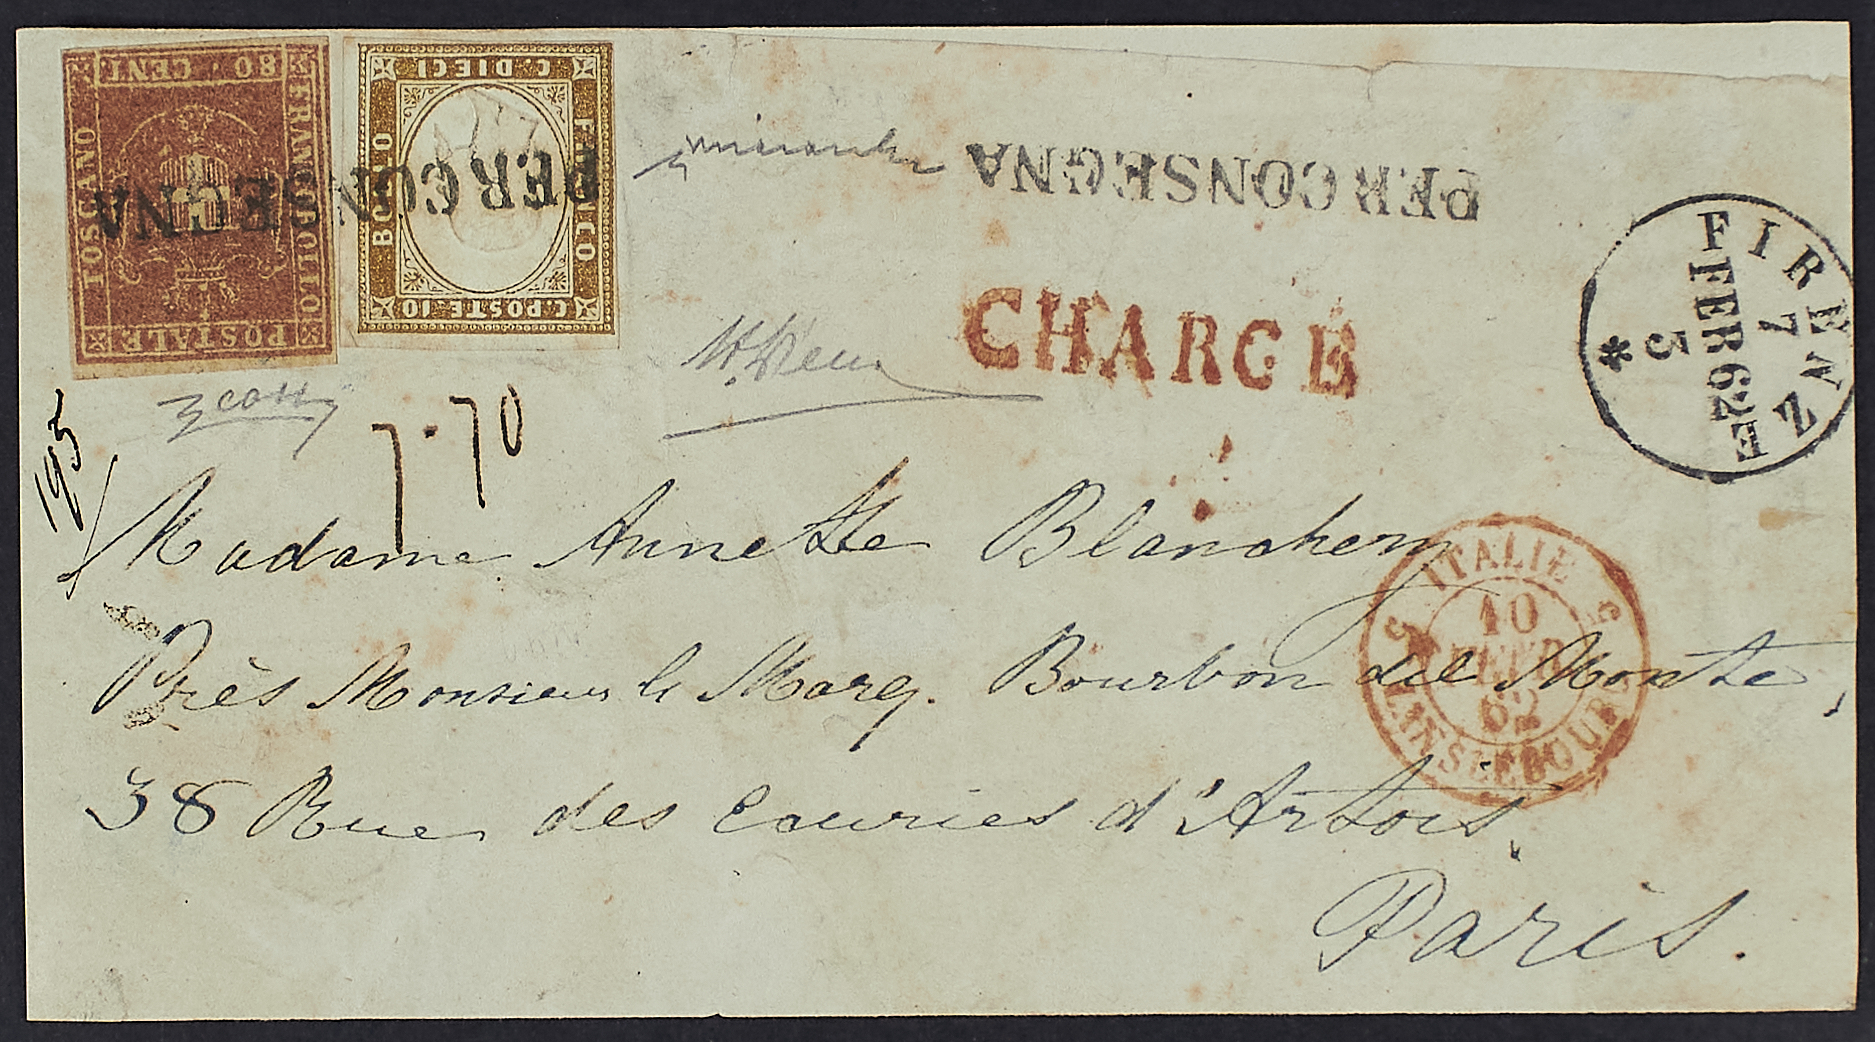 80 CENT
FRANCOBOLLO
POSTALE
TOSCANO
C. DIECI
FRANCO
C. POSTE 10
BOLLO
PER CONSEGNA
PER CONSEGNA
CHARGÉ
FIRENZE
7
FEB 62
5
*
195
7·70
Madame Annette Blanchery
Près Monsieur le Marq. Bourbon del Monte,
38 Rue des Ecuries d'Artois,
Paris.
5 ITALIE 5
10
FEVR
62
LANSLEBOURG